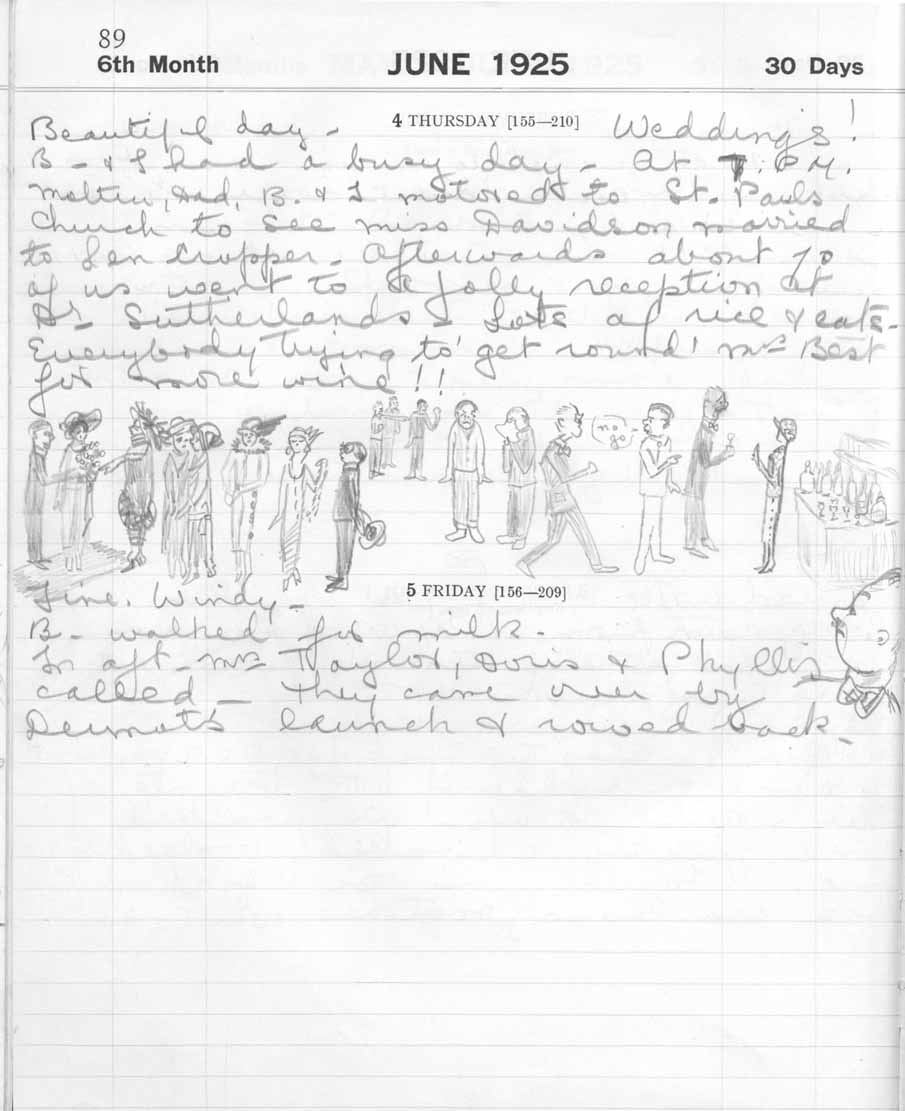 89
6th Month JUNE 1925 30 Days
4 THURSDAY [155—210]
Beautiful day - Weddings!
B - & I had a busy day - At 7. P.M.
Dad, B. & I motored to St. Pauls
Church to see Miss Davidson married
to Len Cropper - Afterwards about 70
of us went to a jolly reception at
Dr Sutherlands - Lots of rice & eats -
Everybody trying to get round! Mrs Best
for more wine!!
no go
5 FRIDAY [156—209]
Fine. Windy -
B - walked for milk -
In aft - Mrs Taylor, Doris & Phyllis
called - They came over by
Dermots launch & rowed back -